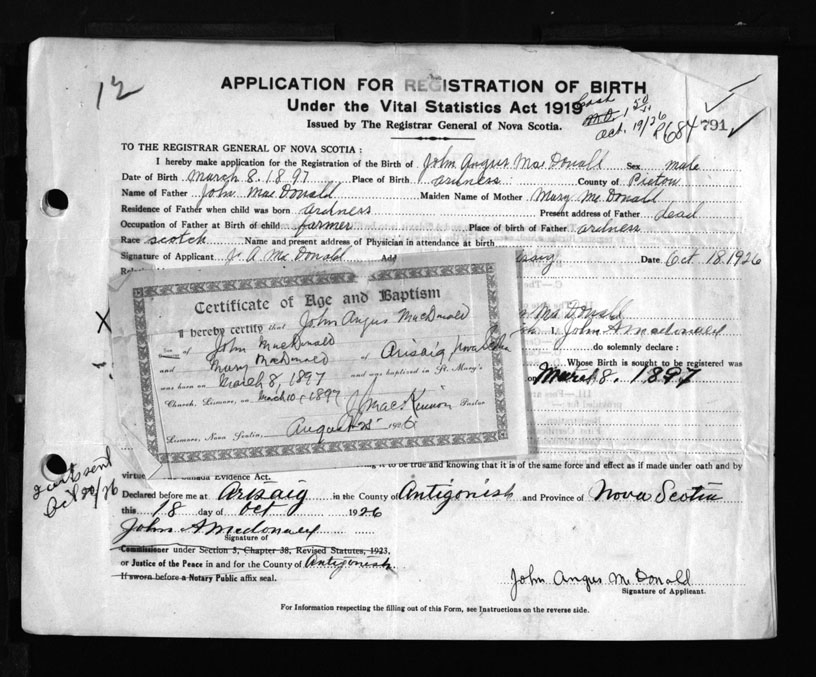 12
APPLICATION FOR REGISTRATION OF BIRTH
Under the Vital Statistics Act 1919
Issued by The Registrar General of Nova Scotia.
Cash
M.O. 1 50
Oct. 19/26
P684791
TO THE REGISTRAR GENERAL OF NOVA SCOTIA:
I hereby make application for the Registration of the Birth of John Angus MacDonald Sex male
Date of Birth March 8. 1897 Place of Birth ardness County of Pictou
Name of Father John MacDonald Maiden Name of Mother Mary McDonald
Residence of Father when child was born ardness Present address of Father dead
Occupation of Father at Birth of child farmer Place of birth of Father ardness
Race scotch Name and present address of Physician in attendance at birth
Signature of Applicant J. A McDonald Add Date Oct 18. 1926
Certificate of Age and Baptism
I hereby certify that John Angus MacDonald
Son of John MacDonald
and Mary MacDonald of Arisaig Nova Scotia
was born on March 8, 1897 and was baptised in St. Mary's
Church, Lismore, on March 10, 1897
J MacKinnon Pastor
Lismore, Nova Scotia, August 25 1926
McDonald
I, John A Macdonald
do solemnly declare:
Whose Birth is sought to be registered was
March 8. 1897
X
ing it to be true and knowing that it is of the same force and effect as if made under oath and by
virtue Canada Evidence Act.
sent
Oct 20/26
Declared before me at Arisaig in the County of Antigonish and Province of Nova Scotia
this 18 day of Oct 1926
John A Mcdonald
Signature of
Commissioner under Section 5, Chapter 38, Revised Statutes, 1923,
or Justice of the Peace in and for the County of Antigonish
If sworn before a Notary Public affix seal.
John Angus McDonald
Signature of Applicant.
For Information respecting the filling out of this Form, see Instructions on the reverse side.